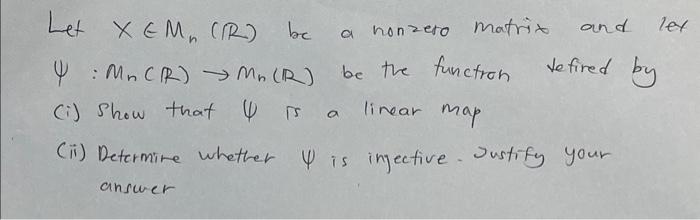 Let X ∈ Mn (R) be a nonzero matrix and let
ψ : Mn (R) → Mn (R) be the function defired by
(i) Show that ψ is a linear map
(ii) Determine whether ψ is injective. Justify your
answer